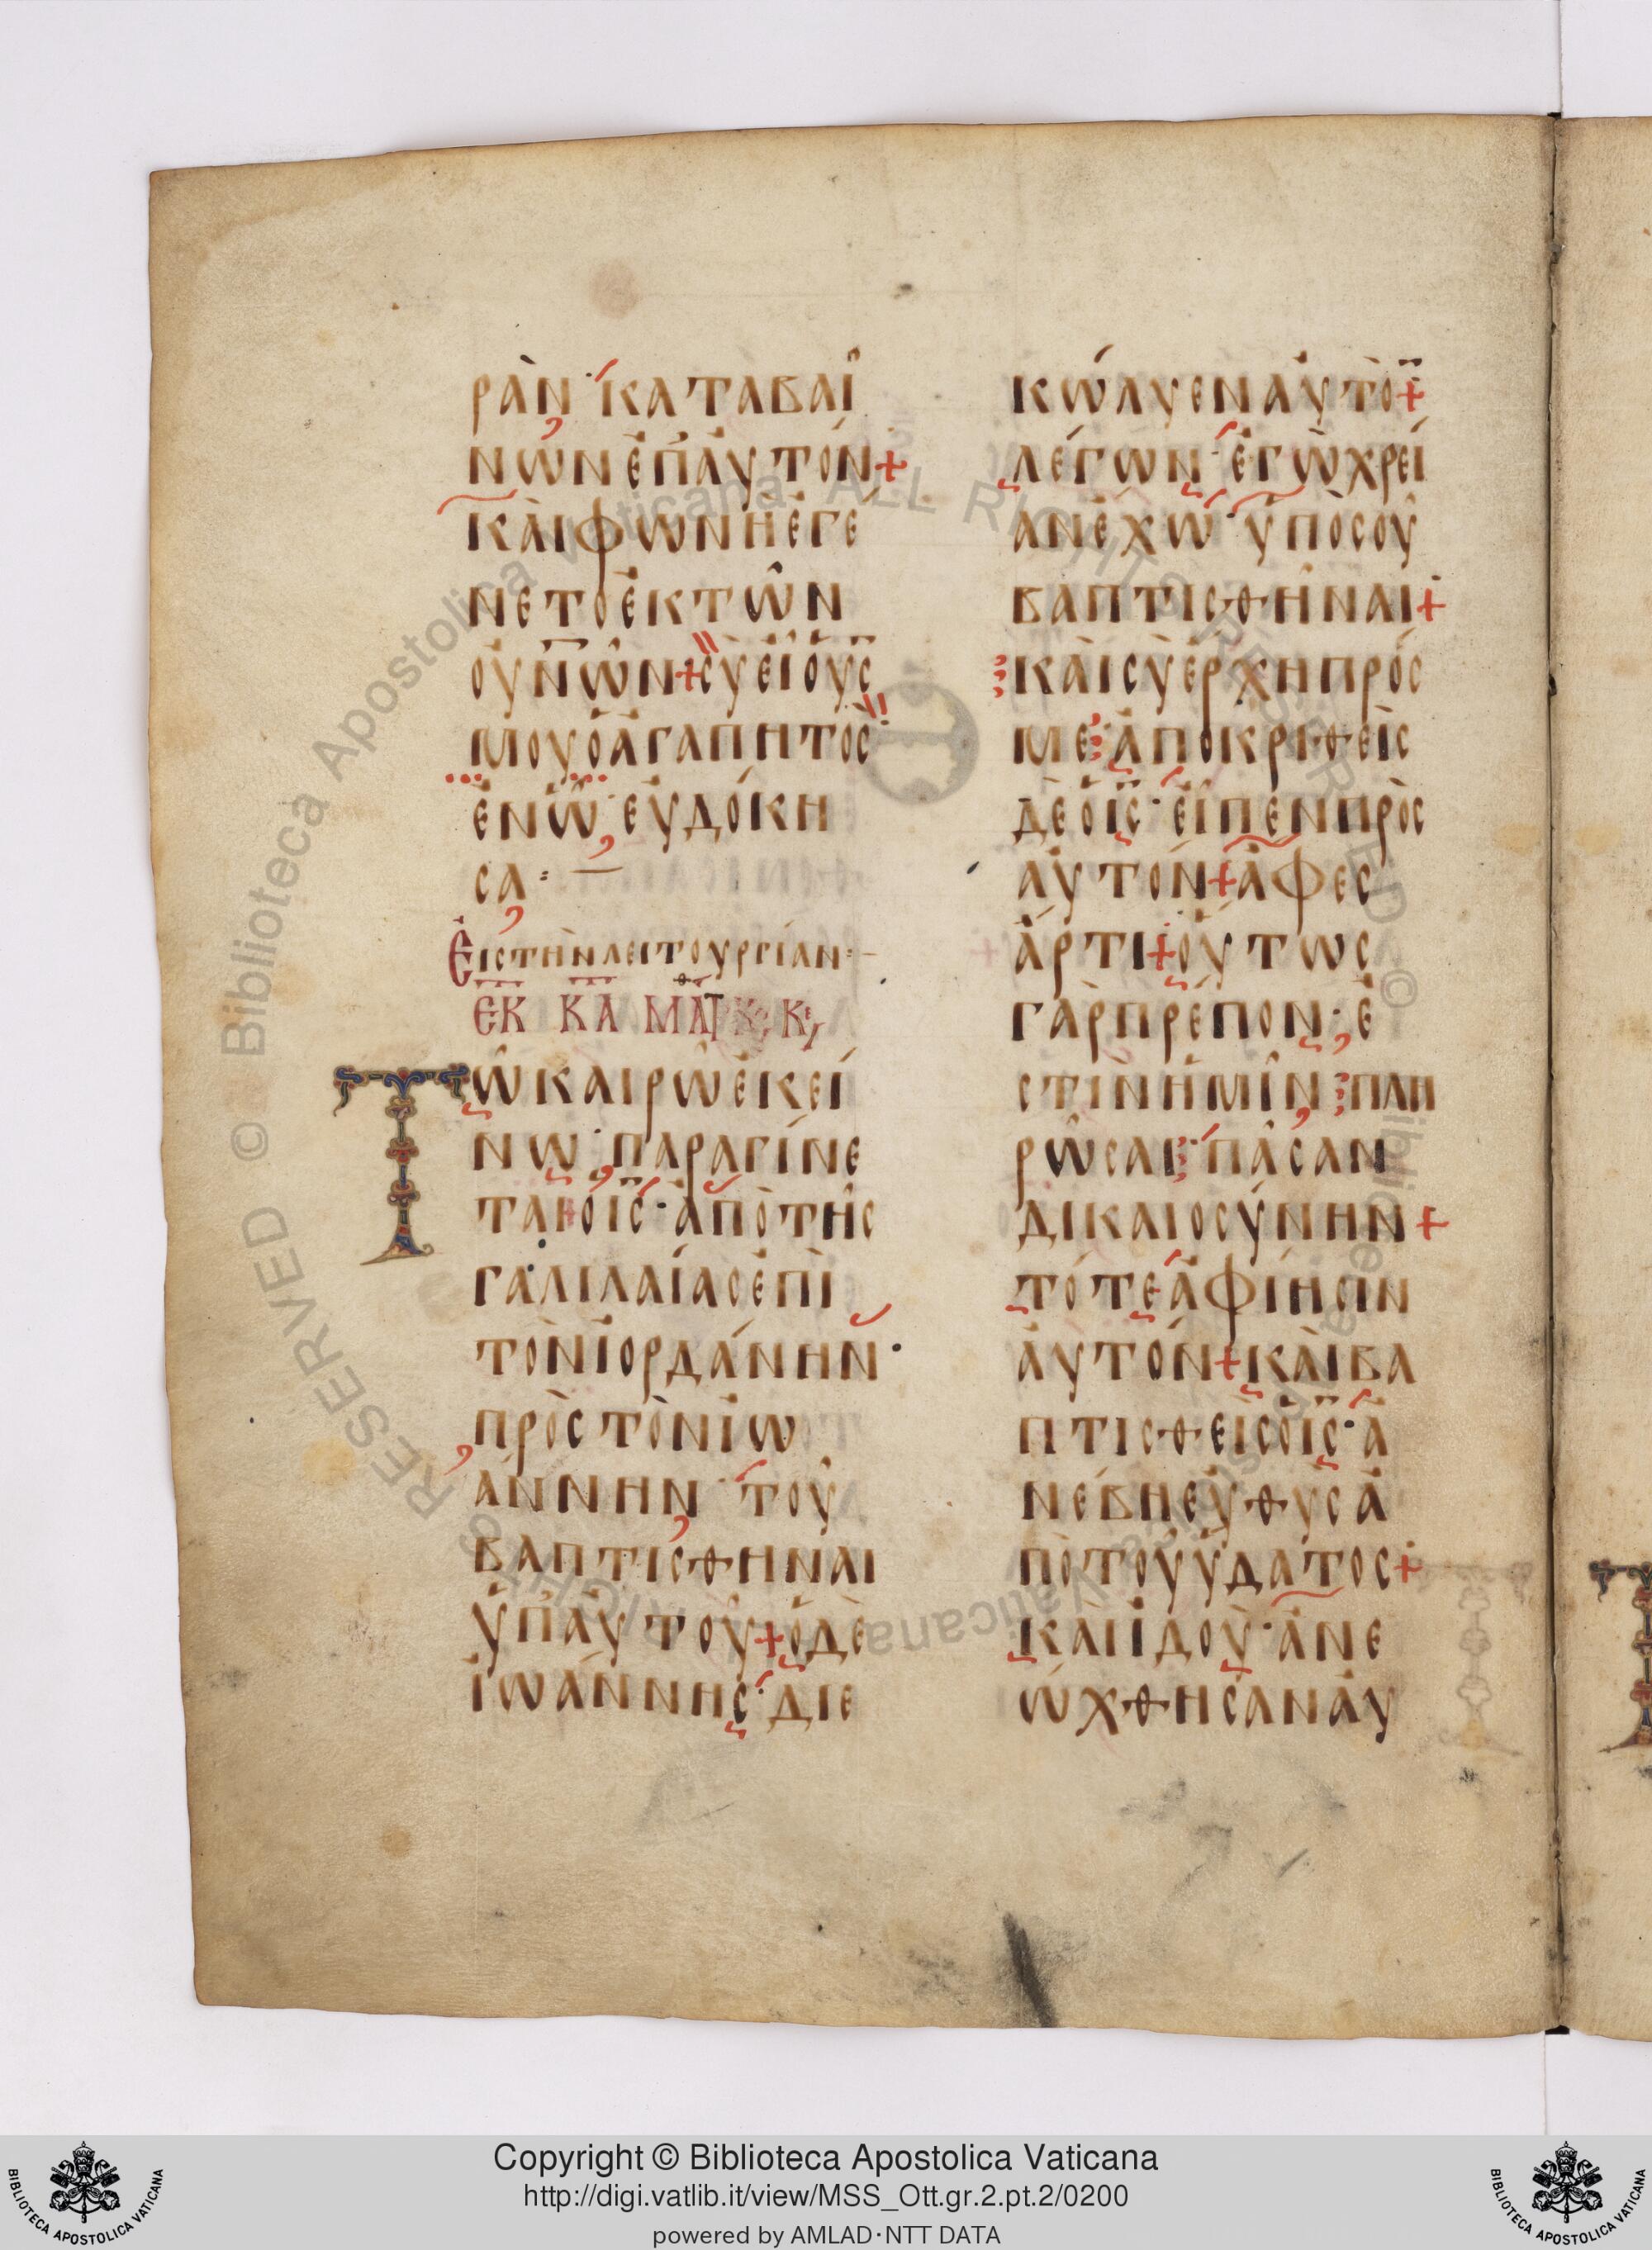 ρὰν· καταβαῖ
νων ἐπ' αὐτόν+
καὶ φωνὴ ἐγέ
νετο ἐκ τῶν
οὐν̅ῶν+ σὺ εἶ ὁ υ̅ς̅
μου ὁ ἀγαπητός·
ἐν ᾧ· εὐδόκη
σα :—
Εἰς τὴν λειτουργίαν:—
ΕΚ ΚΑ ΜΑΤΘ
Τῶ καιρῶ ἐκεί
νω· παραγίνε
ται ὁ ι̅ς̅· ἀπὸ τῆς
γαλιλαίας ἐπὶ
τὸν ἰορδάνην·
πρὸς τὸν ἰω
άννην· τοῦ
βαπτισθῆναι
ὑπ' αὐτοῦ+ ὁ δὲ
ἰωάννης· διε
κώλυεν αὐτὸ̅+
λέγων· ἐγὼ χρεί
αν ἔχω· ὑπὸ σοῦ
βαπτισθῆναι+
καὶ σὺ ἔρχη πρός
με· ἀποκριθεὶς
δὲ ὁ ι̅ς̅· εἶπεν πρὸς
αὐτόν+ ἄφες
ἄρτι+ οὕτως
γὰρ πρέπον· ἐ
στὶν ἡμῖν πλη
ρῶσαι· πᾶσαν
δικαιοσύνην+
τότε ἀφίησιν
αὐτόν+ καὶ βα
πτισθεὶς ὁ ι̅ς̅· ἀ
νέβη εὐθὺς ἀ
πὸ τοῦ ὕδατος+
καὶ ἰδοὺ· ἀνε
ώχθησαν αὐ
Copyright © Biblioteca Apostolica Vaticana
http://digi.vatlib.it/view/MSS_Ott.gr.2.pt.2/0200
powered by AMLAD·NTT DATA
BIBLIOTECA APOSTOLICA VATICANA
BIBLIOTECA APOSTOLICA VATICANA